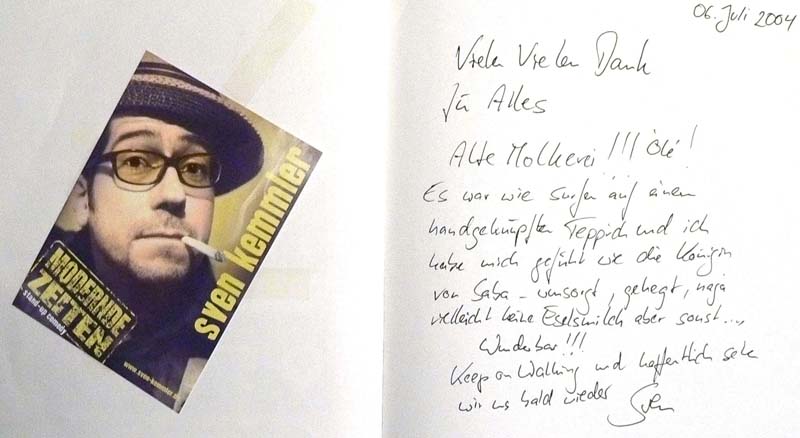 sven kemmler
MODERNDE
ZEITEN
stand-up comedy
www.sven-kemmler.de
06. Juli 2004
Vielen Vielen Dank
für Alles
Alte Molkerei !!! Olé!
Es war wie surfen auf einem
handgeknüpften Teppich und ich
habe mich gefühlt wie die Königin
von Saba - umsorgt, gehegt, naja
vielleicht keine Eselsmilch aber sonst....
Wunderbar!!!
Keep on Walking und hoffentlich sehn
wir uns bald wieder Sven